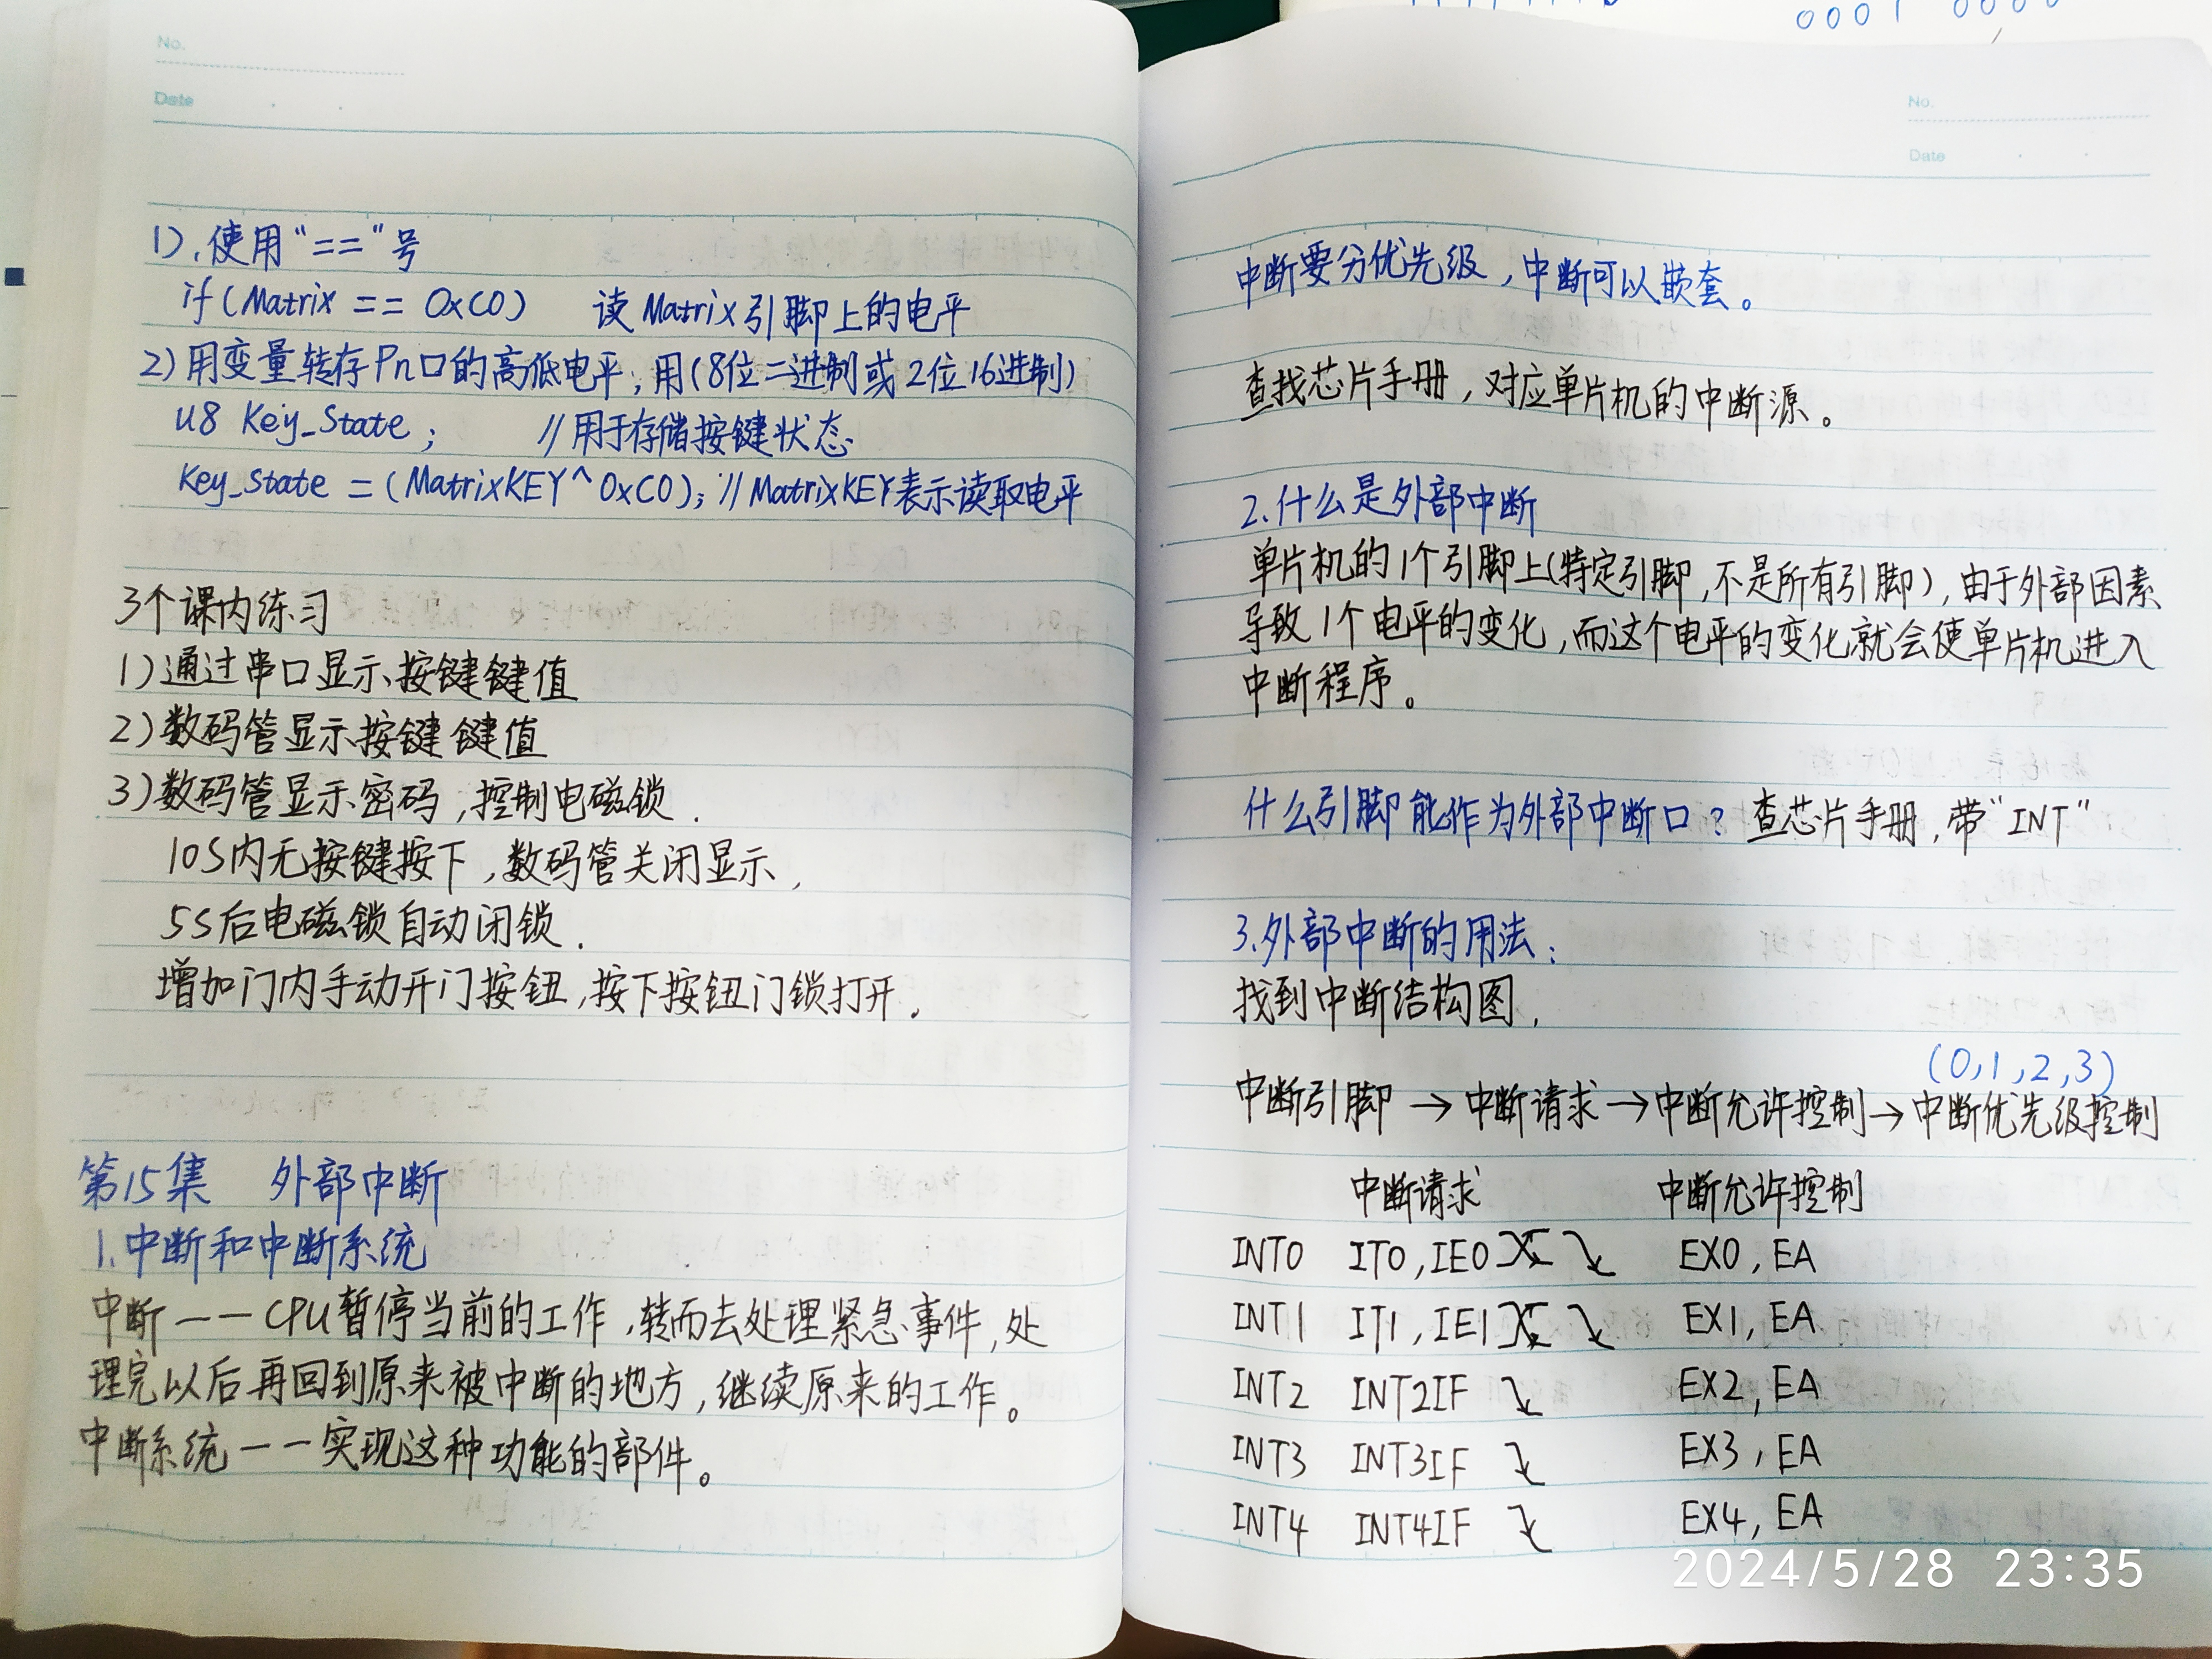 No.
Date
1).使用"=="号
if(Matrix == 0xC0) 读Matrix引脚上的电平
2)用变量转存Pn口的高低电平,用(8位二进制或2位16进制)
u8 Key_State; //用于存储按键状态
Key_State =(MatrixKEY^0xC0); //MatrixKEY表示读取电平
3个课内练习
1)通过串口显示按键键值
2)数码管显示按键键值
3)数码管显示密码,控制电磁锁.
10S内无按键按下,数码管关闭显示,
5S后电磁锁自动闭锁.
增加门内手动开门按钮,按下按钮门锁打开.
第15集 外部中断
1.中断和中断系统
中断——CPU暂停当前的工作,转而去处理紧急事件,处
理完以后再回到原来被中断的地方,继续原来的工作。
中断系统——实现这种功能的部件。
0001 0000
No.
Date
中断要分优先级,中断可以嵌套。
查找芯片手册,对应单片机的中断源。
2.什么是外部中断
单片机的1个引脚上(特定引脚,不是所有引脚),由于外部因素
导致1个电平的变化,而这个电平的变化就会使单片机进入
中断程序。
什么引脚能作为外部中断口?查芯片手册,带"INT"
3.外部中断的用法:
找到中断结构图.
(0,1,2,3)
中断引脚→中断请求→中断允许控制→中断优先级控制
中断请求 中断允许控制
INT0 IT0,IE0 EX0,EA
INT1 IT1,IE1 EX1,EA
INT2 INT2IF EX2,EA
INT3 INT3IF EX3,EA
INT4 INT4IF EX4,EA
2024/5/28 23:35